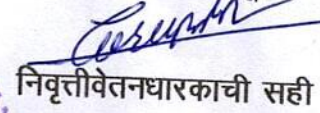 निवृत्तीवेतनधारकाची सही